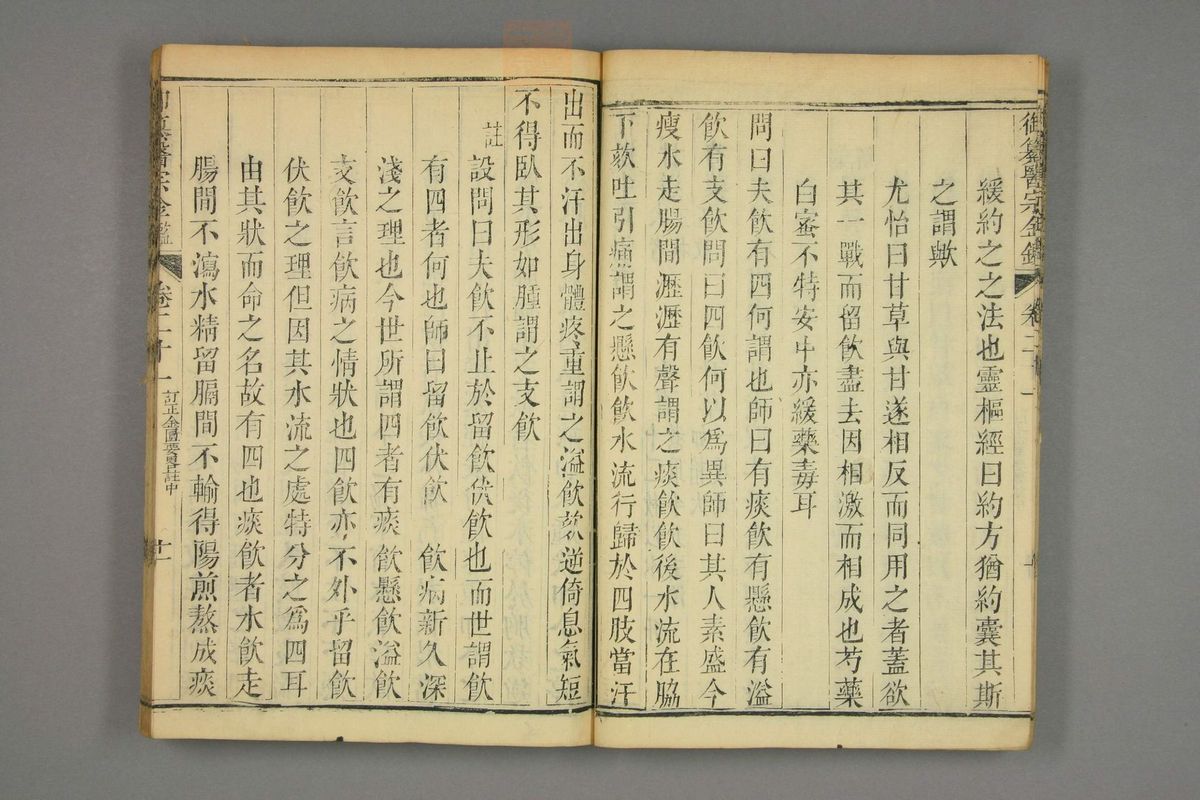 御纂醫宗金鑑 卷二十一
緩約之之法也靈樞經曰約方猶約囊其斯
之謂歟
尤怡曰甘草與甘遂相反而同用之者蓋欲
其一戰而留飲盡去因相激而相成也芍藥
白蜜不特安中亦緩藥毒耳
問曰夫飲有四何謂也師曰有痰飲有懸飲有溢
飲有支飲問曰四飲何以爲異師曰其人素盛今
瘦水走腸間瀝瀝有聲謂之痰飲飲後水流在脇
下欬吐引痛謂之懸飲飲水流行歸於四肢當汗
出而不汗出身體疼重謂之溢飲欬逆倚息氣短
不得臥其形如腫謂之支飲
註 設問曰夫飲不止於留飲伏飲也而世謂飲
有四者何也師曰留飲伏飲 飲病新久深
淺之理也今世所謂四者有痰 飲懸飲溢飲
支飲言飲病之情狀也四飲亦不外乎留飲
伏飲之理但因其水流之處特分之爲四耳
由其狀而命之名故有四也痰飲者水飲走
腸間不瀉水精留膈間不輸得陽煎熬成痰
醫宗金鑑 卷二十一 訂正金匱要畧註中 廿一